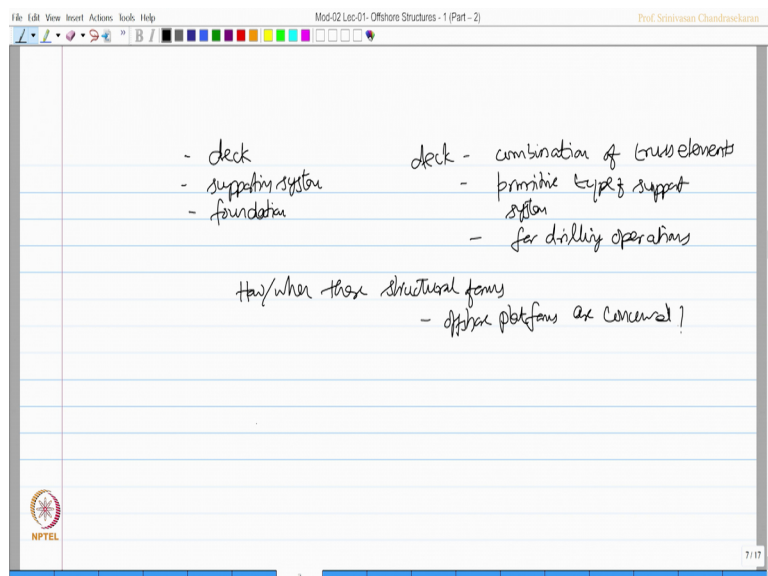 File Edit View Insert Actions Tools Help
Mod-02 Lec-01- Offshore Structures - 1 (Part – 2)
Prof. Srinivasan Chandrasekaran
- deck
- supporting system
- foundation
deck - combination of truss elements
- primitive type of support
system
- for drilling operations
How/when these structural forms
- offshore platforms are conceived?
NPTEL
7 / 17